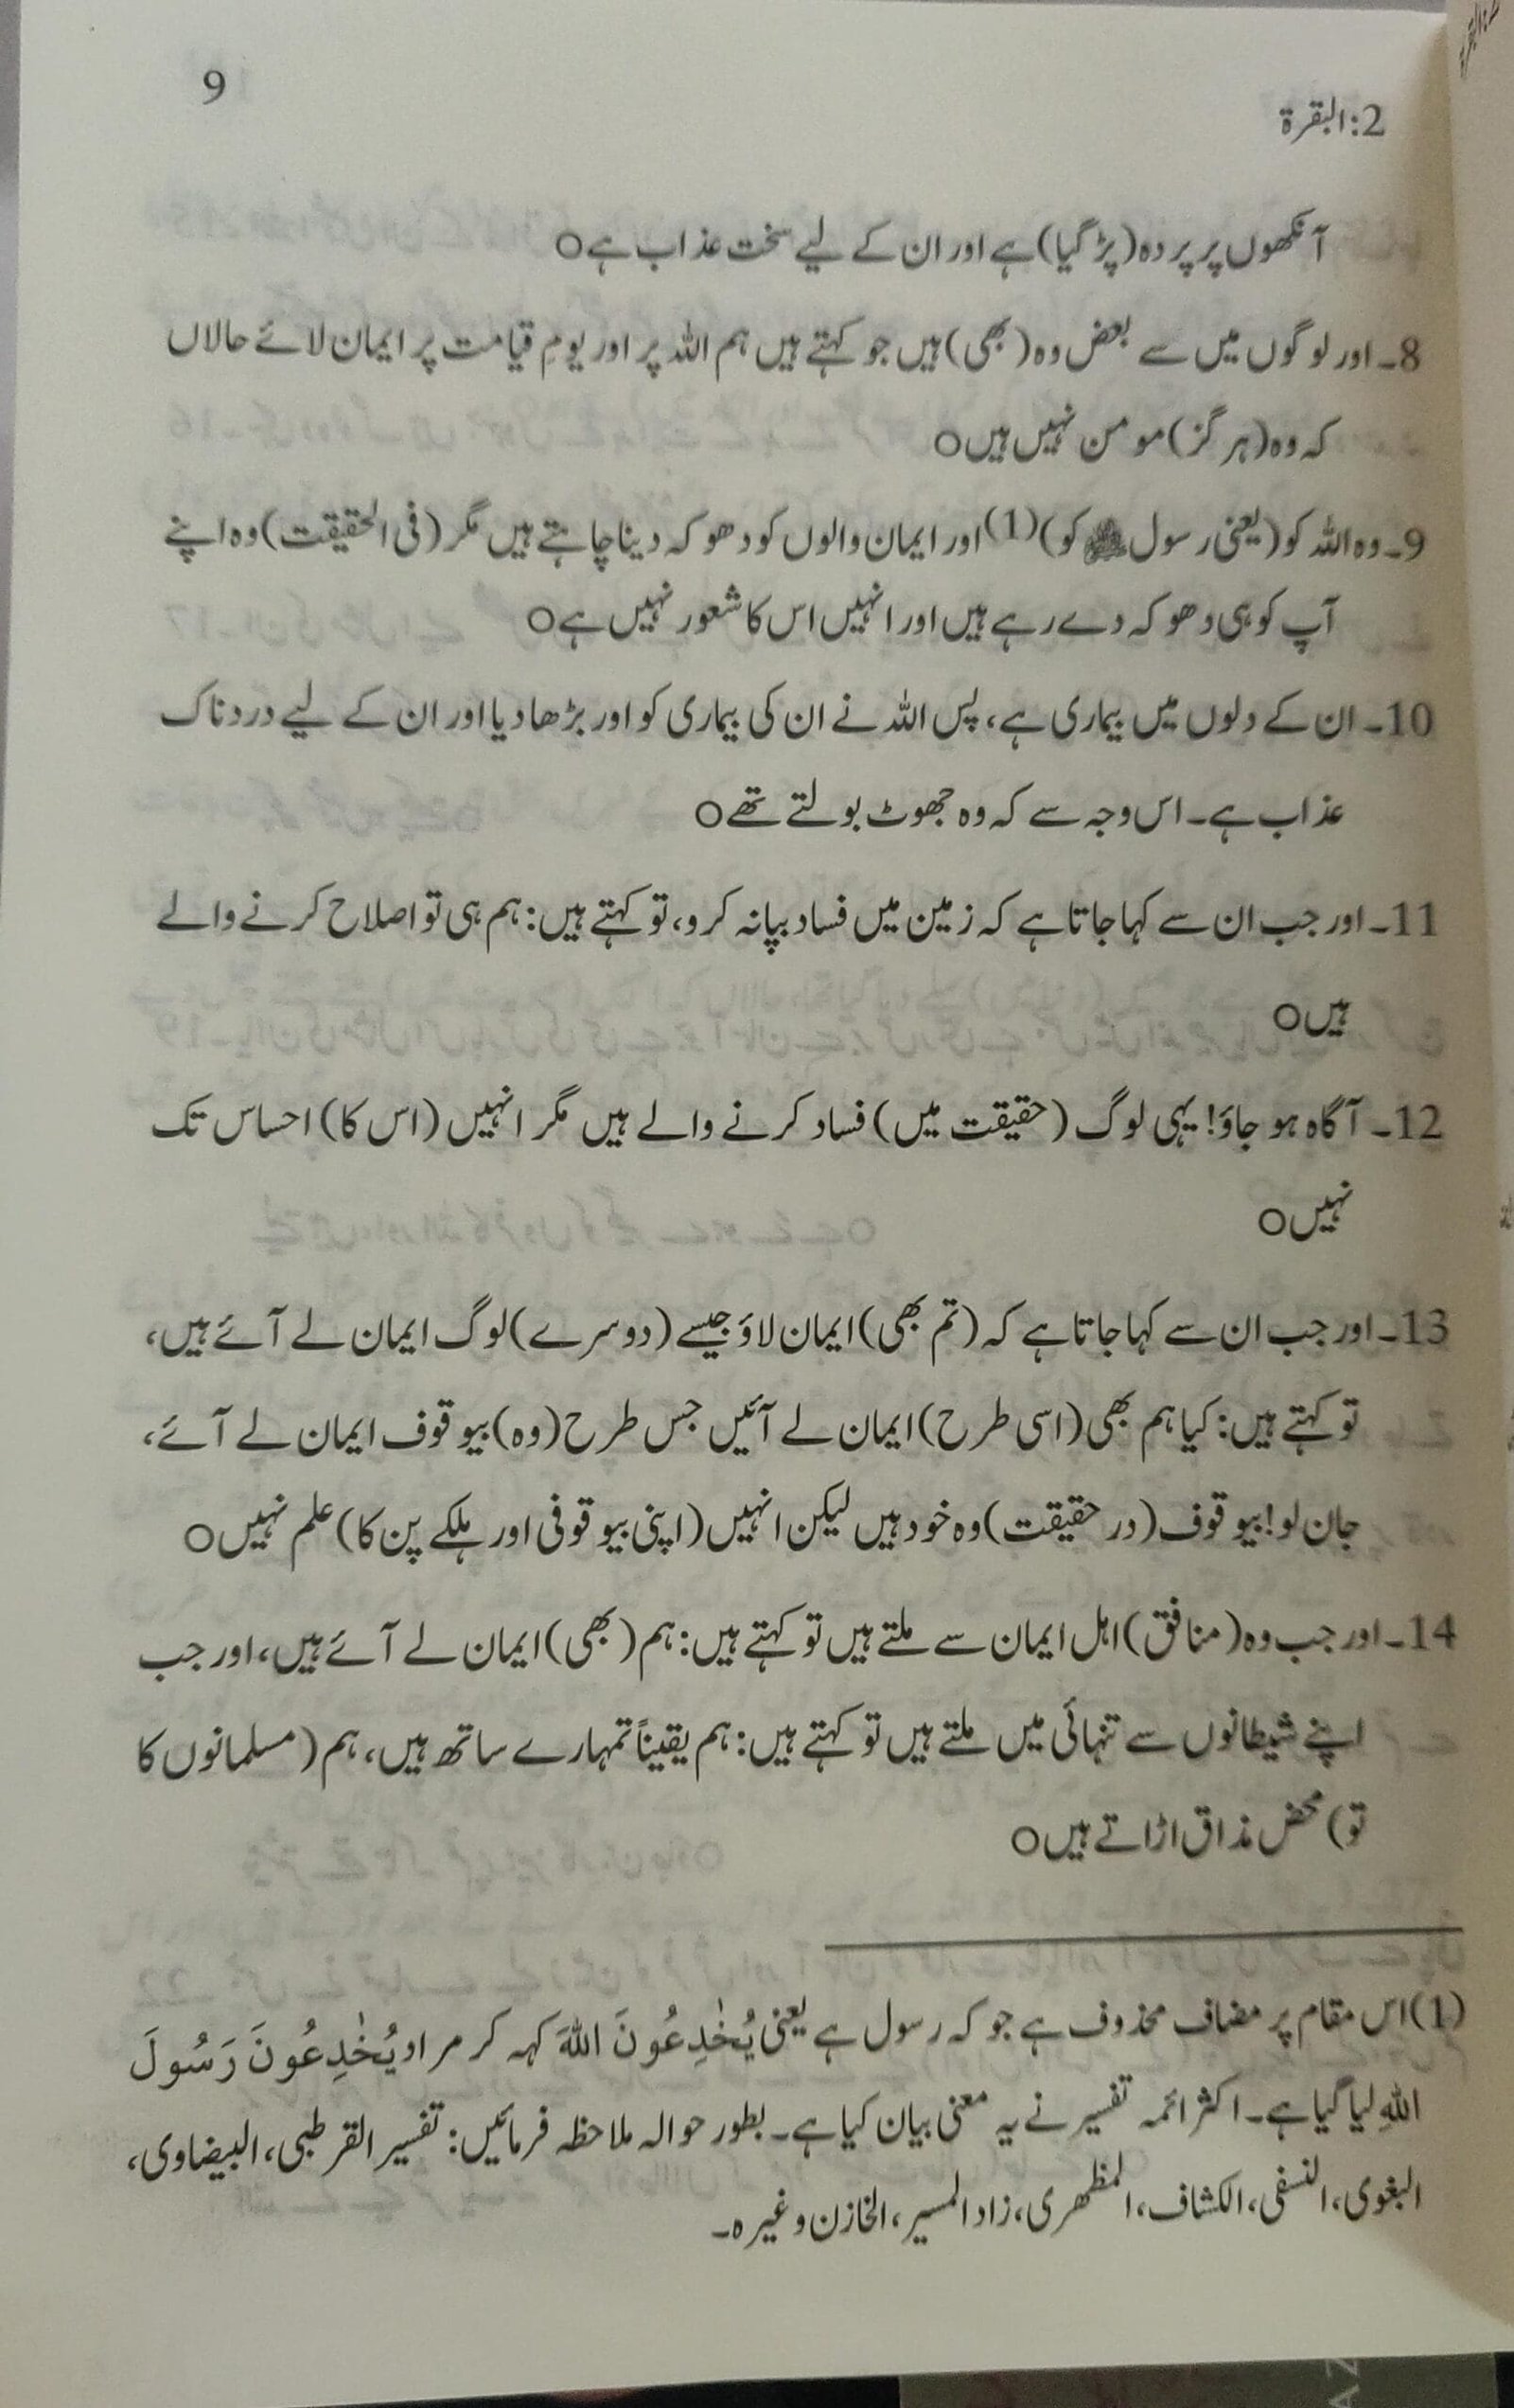 9
2:البقرة
آنکھوں پر پردہ (پڑ گیا) ہے اور ان کے لیے سخت عذاب ہے○
8۔ اور لوگوں میں سے بعض وہ (بھی) ہیں جو کہتے ہیں ہم اللہ پر اور یومِ قیامت پر ایمان لائے حالاں
کہ وہ (ہر گز) مومن نہیں ہیں○
9۔ وہ اللہ کو (یعنی رسول ﷺ کو)(1) اور ایمان والوں کو دھوکہ دینا چاہتے ہیں مگر (فی الحقیقت) وہ اپنے
آپ کو ہی دھوکہ دے رہے ہیں اور انہیں اس کا شعور نہیں ہے○
10۔ ان کے دلوں میں بیماری ہے، پس اللہ نے ان کی بیماری کو اور بڑھا دیا اور ان کے لیے دردناک
عذاب ہے۔ اس وجہ سے کہ وہ جھوٹ بولتے تھے○
11۔ اور جب ان سے کہا جاتا ہے کہ زمین میں فساد بپا نہ کرو، تو کہتے ہیں: ہم ہی تو اصلاح کرنے والے
ہیں○
12۔ آگاہ ہو جاؤ! یہی لوگ (حقیقت میں) فساد کرنے والے ہیں مگر انہیں (اس کا) احساس تک
نہیں○
13۔ اور جب ان سے کہا جاتا ہے کہ (تم بھی) ایمان لاؤ جیسے (دوسرے) لوگ ایمان لے آئے ہیں،
تو کہتے ہیں: کیا ہم بھی (اسی طرح) ایمان لے آئیں جس طرح (وہ) بیوقوف ایمان لے آئے،
جان لو! بیوقوف (در حقیقت) وہ خود ہیں لیکن انہیں (اپنی بیوقوفی اور ہلکے پن کا) علم نہیں○
14۔ اور جب وہ (منافق) اہل ایمان سے ملتے ہیں تو کہتے ہیں: ہم (بھی) ایمان لے آئے ہیں، اور جب
اپنے شیطانوں سے تنہائی میں ملتے ہیں تو کہتے ہیں: ہم یقیناً تمہارے ساتھ ہیں، ہم (مسلمانوں کا
تو) محض مذاق اڑاتے ہیں○
(1) اس مقام پر مضاف محذوف ہے جو کہ رسول ہے یعنی یُخٰدِعُونَ اللهَ کہہ کر مراد یُخٰدِعُونَ رَسُولَ
اللهِ لیا گیا ہے۔ اکثر ائمہ تفسیر نے یہ معنی بیان کیا ہے۔ بطور حوالہ ملاحظہ فرمائیں: تفسیر القرطبی، البیضاوی،
البغوی، النسفی، الکشاف، المظہری، زاد المسیر، الخازن وغیرہ۔